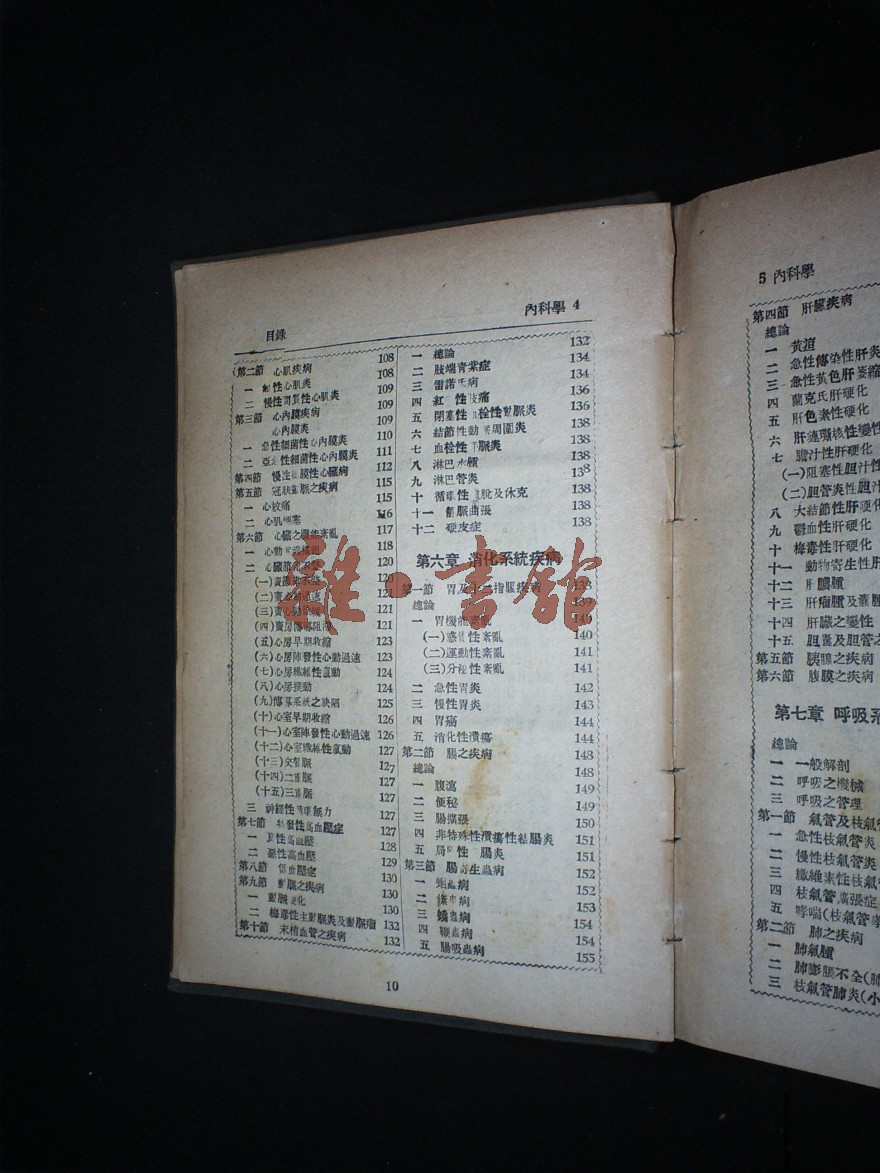 目錄
內科學 4
第二節 心肌疾病 108
一 性心肌炎 108
二 慢性間質性心肌炎 109
第三節 心內膜疾病 109
心內膜炎 109
一 急性細菌性心內膜炎 110
二 亞急性細菌性心內膜炎 111
第四節 慢性瓣膜性心臟病 112
第五節 冠狀動脈之疾病 115
一 心絞痛 115
二 心肌梗塞 116
第六節 心臟之機能紊亂 117
一 心動 118
二 心臟節律不整 120
(一) 120
(二) 心動過速 121
(三) 心動 121
(四) 121
(五)心房早期收縮 123
(六)心房陣發性心動過速 123
(七)心房纖維性氭動 124
(八)心房撲動 124
(九)傳導系統之缺陷 125
(十)心室早期收縮 126
(十一)心室陣發性心動過速 126
(十二)心室纖維性氭動 127
(十三)交替脈 127
(十四)二聯脈 127
(十五)三聯脈 127
三 神經性循環無力 127
第七節 特發性高血壓症 127
一 良性高血壓 128
二 惡性高血壓 129
第八節 低血壓症 130
第九節 動脈之疾病 130
一 動脈硬化 130
二 梅毒性主動脈炎及動脈瘤 132
第十節 末梢血管之疾病 132
一 總論 132
二 肢端青紫症 134
三 雷諾氏病 134
四 紅 性肢痛 136
五 閉塞性血栓性動脈炎 136
六 結節性動脈周圍炎 138
七 血栓性 脈炎 138
八 淋巴水腫 138
九 淋巴管炎 138
十 循環性虛脫及休克 138
十一 靜脈曲張 138
十二 硬皮症 138
第六章 消化系統疾病
第一節 胃及十二指腸疾病 139
總論 139
一 胃機能紊亂 140
(一)感覺性紊亂 140
(二)運動性紊亂 141
(三)分泌性紊亂 141
二 急性胃炎 142
三 慢性胃炎 143
四 胃癌 144
五 消化性潰瘍 144
第二節 腸之疾病 148
總論 148
一 腹瀉 149
二 便秘 149
三 腸擴張 150
四 非特殊性潰瘍性結腸炎 151
五 局限性 腸炎 151
第三節 腸寄生蟲病 152
一 蛔蟲病 152
二 病 153
三 蟯蟲病 154
四 鞭蟲病 154
五 腸吸蟲病 155
10
5 內科學
第四節 肝臟疾病
總論
一 黃疸
二 急性傳染性肝炎
三 急性黃色肝萎縮
四 蘭克氏肝硬化
五 肝色素性硬化
六 肝 核性變性
七 膽汁性肝硬化
(一)阻塞性胆汁
(二)胆管炎性胆汁
八 大結節性肝硬化
九 鬱血性肝硬化
十 梅毒性肝硬化
十一 動物寄生性肝
十二 肝膿腫
十三 肝瘤腫及囊腫
十四 肝臟之變性
十五 胆囊及胆管之
第五節 胰腺之疾病
第六節 腹膜之疾病
第七章 呼吸系
總論
一 一般解剖
二 呼吸之機械
三 呼吸之管理
第一節 氣管及枝氣管
一 急性枝氣管炎
二 慢性枝氣管炎
三 纖維素性枝氣管
四 枝氣管擴張症
五 哮喘(枝氣管
第二節 肺之疾病
一 肺氣腫
二 肺膨脹不全(肺
三 枝氣管肺炎(小
雕·書館